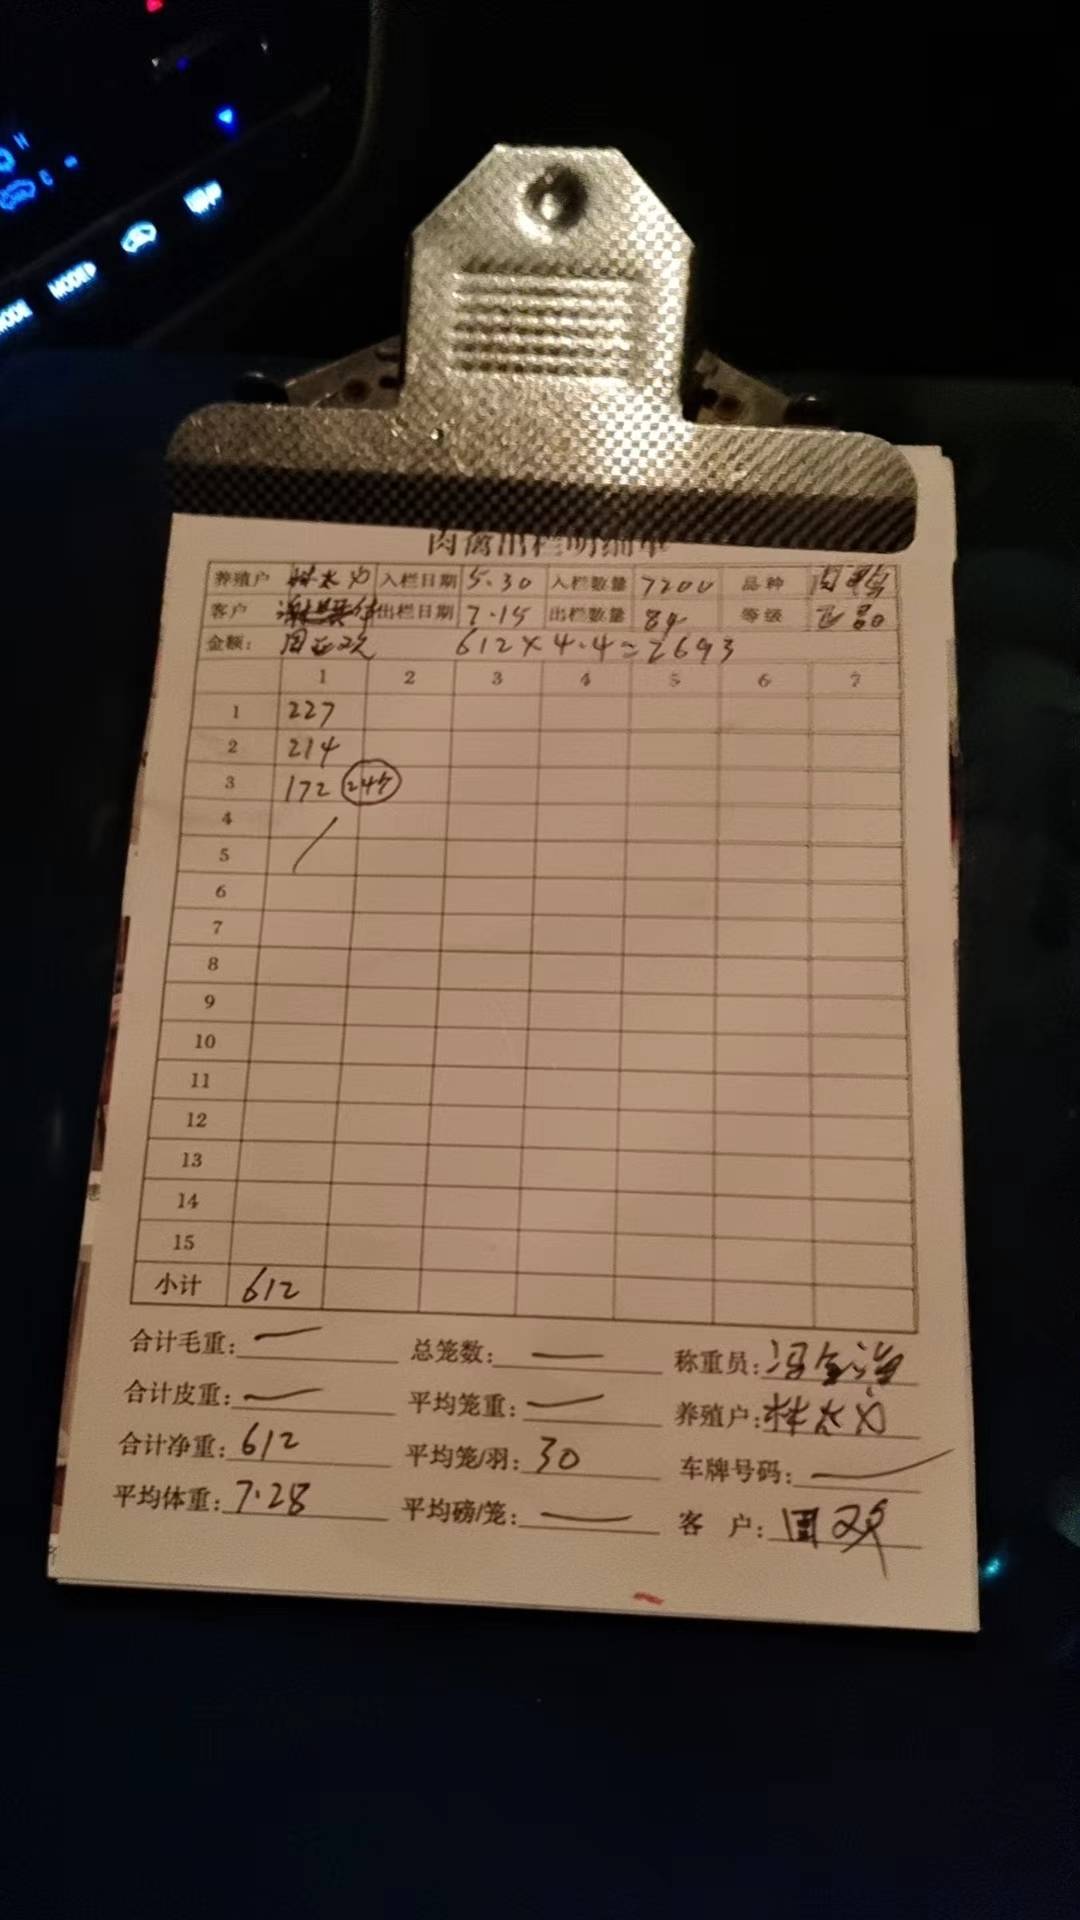 肉禽出栏明细单
养殖户 林太为 入栏日期 5.30 入栏数量 7200 品种 肉鸭
客户 出栏日期 7.15 出栏数量 84 等级 正品
金额: 612×4.4=2693
1 2 3 4 5 6 7
1 227
2 214
3 172 24个
4
5
6
7
8
9
10
11
12
13
14
15
小计 612
合计毛重: 总笼数: 称重员:
合计皮重: 平均笼重: 养殖户:林太为
合计净重:612 平均笼/羽:30 车牌号码:
平均体重:7.28 平均磅/笼: 客 户:
MODE
MODE